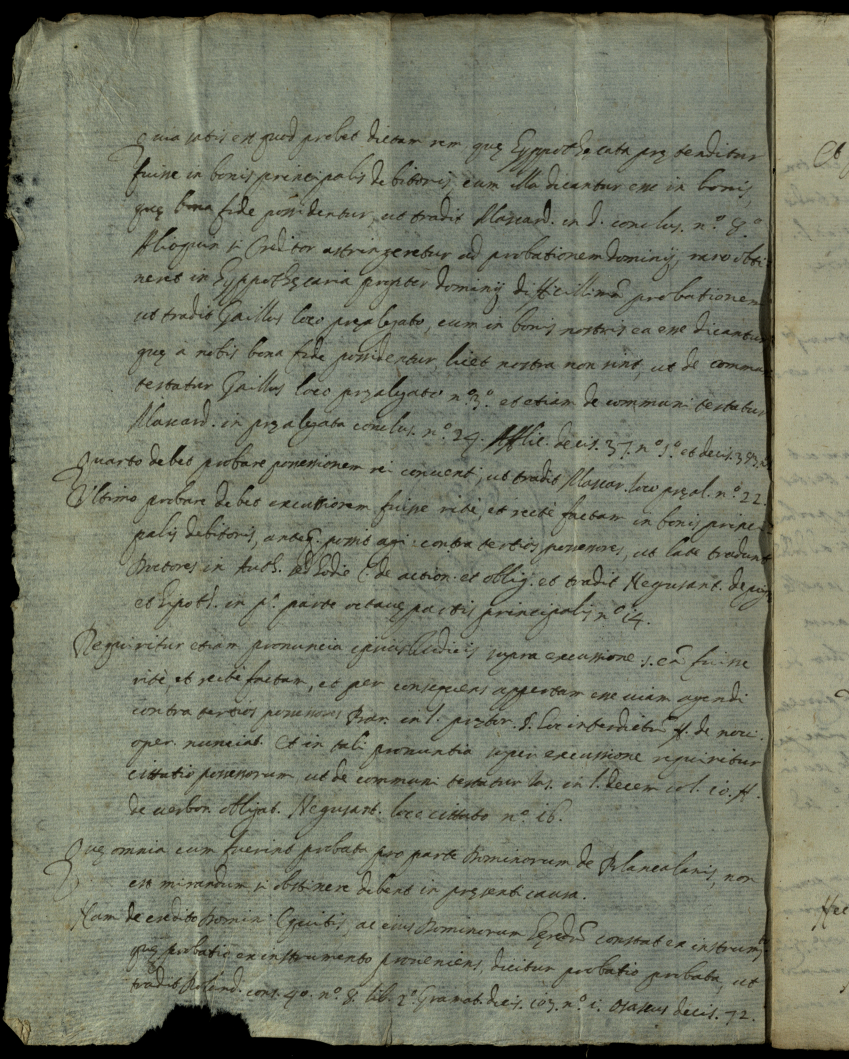 Quia satis est quod probet dictam rem, quę Hyppothecata prętenditur
fuisse in bonis principalis debitoris, cum illa dicantur esse in bonis,
quę bona fide possidentur, ut tradit Mascard. in d. conclus. n.º 8.º
Alioquin si Creditor astringeretur ad probationem dominij, raro obti-
neret in Hyppothecaria propter dominij difficillimã probationem
ut tradit Gaillus loco pręalegato, cum in bonis nostris ea esse dicantur
quę a nobis bona fide possidentur, licet nostra non sint, ut de commun
testatur Gaillus loco pręalegato n.º 3.º et etiam de communi testatur
Mascard. in pręalegata conclus. n.º 24. Afflic. decis. 37. n.º 5.º et decis. 383.
Quarto debet probare possessionem rei conventi, ut tradit Mascar. loco pręal. n.º 22.
Ultimo probare debet excussionem fuisse ritè, et rectè factam in bonis princi-
palis debitoris, anteq. possit agi contra tertios possessores, ut late tradunt
Doctores in Auth. sed hodie C. de action. et oblig. et tradit Negusant. de pign
et hipoth. in p.ª parte octauę partis principalis n.º 14.
Requiritur etiam pronuncia ipsius Iudicis supra excussione .s. eã fuisse
ritè, et rectè factam, et per consequens appertam esse uiam agendi
contra tertios possessores Bar. in l. prętor. §. hoc interdictũ ff. de noui
oper. nunciat. Et in tali pronuntia super excussione requiritur
cittatio possessorum, ut de communi testatur Ias. in l. decem col. 10. ff.
de uerbor. obligat. Negusant. loco cittato n.º 16.
Quę omnia cum fuerint probata pro parte Dominorum de Blancalanis, non
est mirandum, si obtinere debent in pręsenti causa.
Nam de credito Domini Equitis, ac eius Dominorum Hęredũ constat ex instrum.to
quę probatio ex instrumento proueniens, dicitur probatio probata, ut
tradit Roland. cons. 40. n.º 8. lib. 2.º Gramat. decis. 103. n.º 1. Osascus decis. 72.